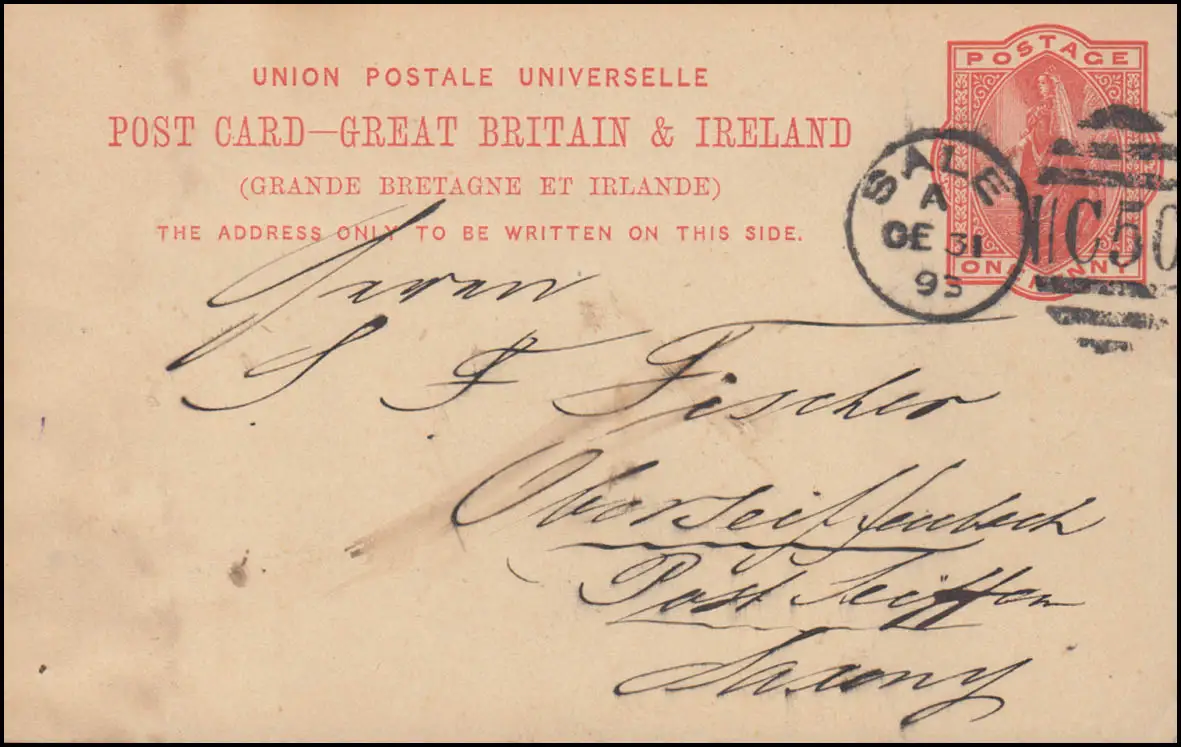 UNION POSTALE UNIVERSELLE
POST CARD—GREAT BRITAIN & IRELAND
(GRANDE BRETAGNE ET IRLANDE)
THE ADDRESS ONLY TO BE WRITTEN ON THIS SIDE.
POSTAGE
ONE PENNY
SALE
A
DE 31
93
C50
Herrn
S. F. Fischer
Oberseiffenbach
Post Seiffen
Saxony